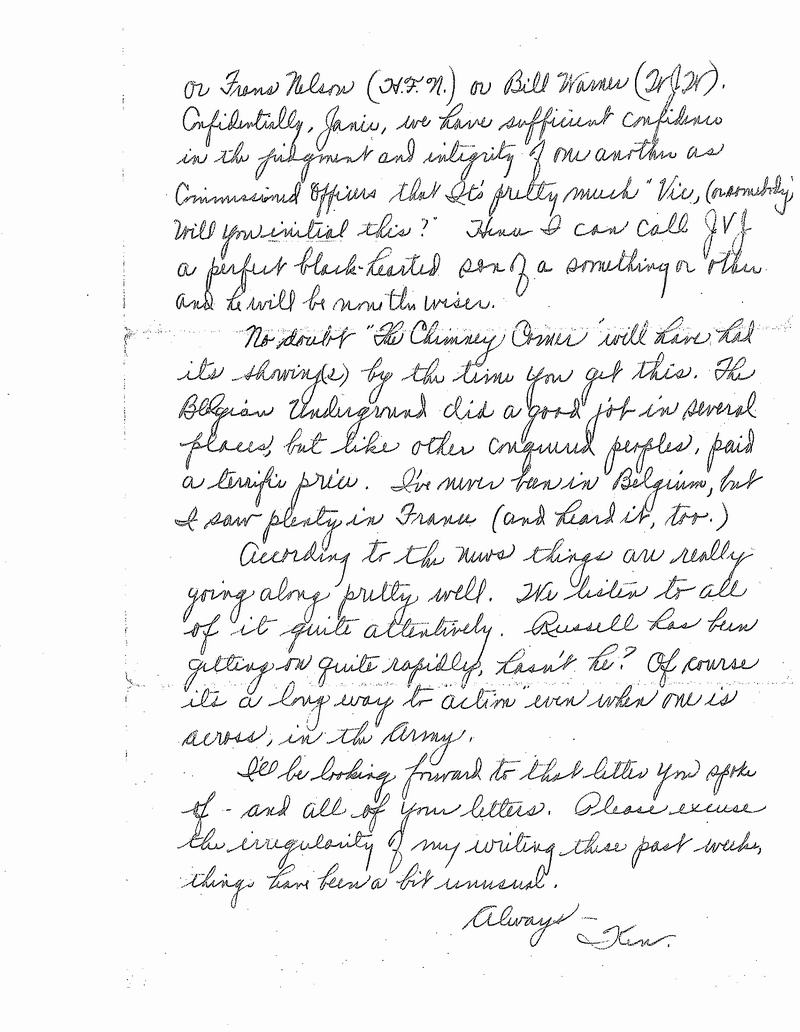 or Frans Nelson (H.F.N.) or Bill Warner (WJW).
Confidentially, Janie, we have sufficient confidence
in the judgment and integrity of one another as
Commissioned Officers that It's pretty much "Vic, (or somebody)
Will you initial this?" Hence I can call JVJ
a perfect black-hearted son of a something or other
and he will be none the wiser.
No doubt "The Chimney Corner" will have had
its showing(s) by the time you get this. The
Belgian Underground did a good job in several
places, but like other conquered peoples, paid
a terrific price. I've never been in Belgium, but
I saw plenty in France (and heard it, too.)
According to the news things are really
going along pretty well. We listen to all
of it quite attentively. Russell has been
getting on quite rapidly, hasn't he? Of course
its a long way to "action" even when one is
across, in the Army.
I'll be looking forward to that letter you spoke
of - and all of your letters. Please excuse
the irregularity of my writing these past weeks,
things have been a bit unusual.
Always -
Ken.